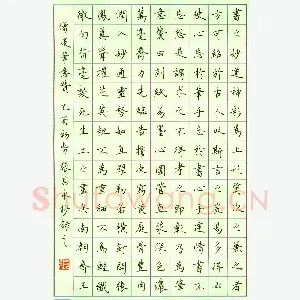 書之妙道神彩為上形質次之兼之者
方可紹於古人以斯言之豈易多得必
使心忘於筆手忘於書心手達情書不
忘想是謂求之不得考之即彰乃為筆
意贊曰剡紙易墨心圓管直漿深色濃
萬毫齊力先臨告誓次寫黃庭骨豐肉
潤入妙通靈努如植槊勒若橫釘開張
鳳翼聳擢芝英粗不為重細不為輕纖
微向背毫髮死生工之盡矣南朝齊王
僧虔筆意贊 乙酉初春
Shufawang.CN